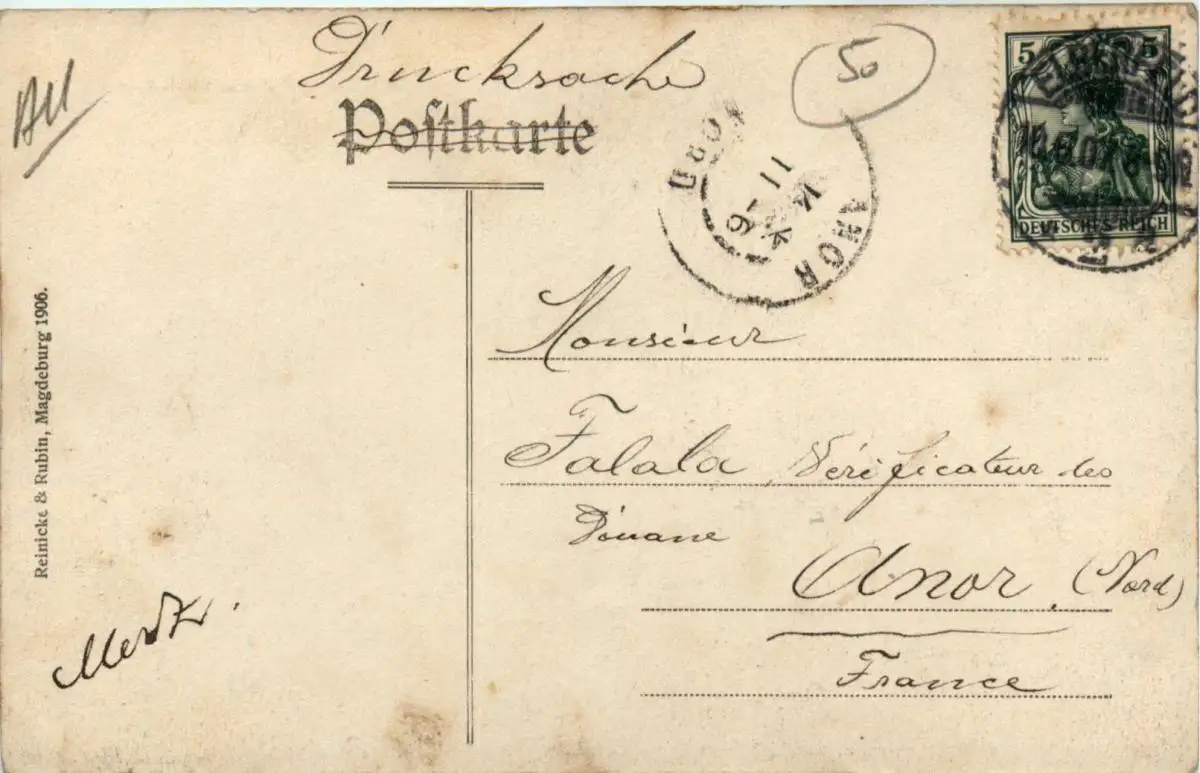 Drucksache
50
AU
Postkarte
5 5
DEUTSCHES REICH
ANOR
NORD
11 - 6
Monsieur
Falala, Vérificateur des
Douane
Anor, (Nord)
France
Reinicke & Rubin, Magdeburg 1906.